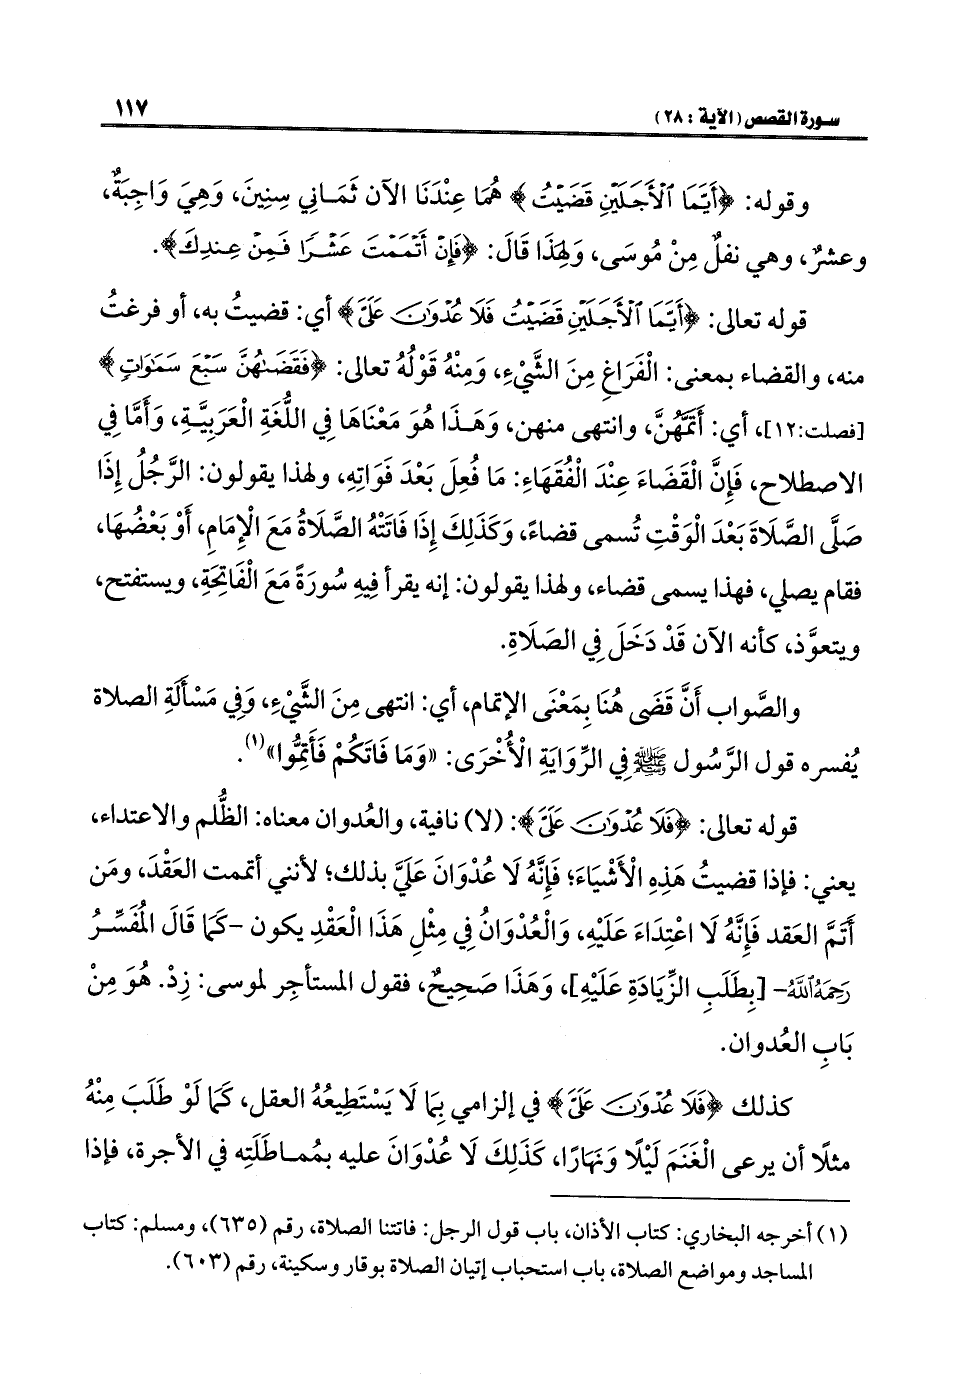 سورة القصص (الآية : ٢٨)
١١٧
وقوله: ﴿أَيَّمَا ٱلْأَجَلَيْنِ قَضَيْتُ﴾ هُمَا عِنْدَنَا الآن ثَمَانِي سِنِينَ، وَهِيَ وَاجِبَةٌ،
وعشرٌ، وهي نفلٌ مِنْ مُوسَى، وَلِهَذَا قَالَ: ﴿فَإِنْ أَتْمَمْتَ عَشْرًا فَمِنْ عِندِكَ﴾.
قوله تعالى: ﴿أَيَّمَا ٱلْأَجَلَيْنِ قَضَيْتُ فَلَا عُدْوَٰنَ عَلَىَّ﴾ أي: قضيتُ به، أو فرغتُ
منه، والقضاء بمعنى: الْفَرَاغِ مِنَ الشَّيْءِ، وَمِنْهُ قَوْلُهُ تعالى: ﴿فَقَضَىٰهُنَّ سَبْعَ سَمَٰوَاتٍ﴾
[فصلت:١٢]، أي: أَتَمَّهُنَّ، وانتهى منهن، وَهَذَا هُوَ مَعْنَاهَا فِي اللُّغَةِ الْعَرَبِيَّةِ، وَأَمَّا فِي
الاصطلاح، فَإِنَّ الْقَضَاءَ عِنْدَ الْفُقَهَاءِ: مَا فُعِلَ بَعْدَ فَوَاتِهِ، ولهذا يقولون: الرَّجُلُ إِذَا
صَلَّى الصَّلَاةَ بَعْدَ الْوَقْتِ تُسمى قضاءً، وَكَذَلِكَ إِذَا فَاتَتْهُ الصَّلَاةُ مَعَ الْإِمَامِ، أَوْ بَعْضُهَا،
فقام يصلي، فهذا يسمى قضاء، ولهذا يقولون: إنه يقرأ فِيهِ سُورَةً مَعَ الْفَاتِحَةِ، ويستفتح،
ويتعوَّذ، كأنه الآن قَدْ دَخَلَ فِي الصَّلَاةِ.
والصَّواب أَنَّ قَضَى هُنَا بِمَعْنَى الإتمام، أي: انتهى مِنَ الشَّيْءِ، وَفِي مَسْأَلَةِ الصلاة
يُفسره قول الرَّسُول ﷺ فِي الرِّوَايَةِ الْأُخْرَى: «وَمَا فَاتَكُمْ فَأَتِمُّوا»(١).
قوله تعالى: ﴿فَلَا عُدْوَٰنَ عَلَىَّ﴾: (لا) نافية، والعُدوان معناه: الظُّلم والاعتداء،
يعني: فإذا قضيتُ هَذِهِ الْأَشْيَاءَ؛ فَإِنَّهُ لَا عُدْوَانَ عَلَيَّ بذلك؛ لأنني أتممت العَقْدَ، ومَن
أَتَمَّ العَقد فَإِنَّهُ لَا اعْتِدَاءَ عَلَيْهِ، وَالْعُدْوَانُ فِي مِثْلِ هَذَا الْعَقْدِ يكون -كَمَا قَالَ الْمُفَسِّرُ
رَحِمَهُ ٱللَّهُ- [بِطَلَبِ الزِّيَادَةِ عَلَيْهِ]، وَهَذَا صَحِيحٌ، فقول المستأجر لموسى: زِدْ. هُوَ مِنْ
بَابِ العُدوان.
كذلك ﴿فَلَا عُدْوَٰنَ عَلَىَّ﴾ في إلزامي بِمَا لَا يَسْتَطِيعُهُ العقل، كَمَا لَوْ طَلَبَ مِنْهُ
مثلًا أن يرعى الْغَنَمَ لَيْلًا وَنَهَارًا، كَذَلِكَ لَا عُدْوَانَ عليه بمُماطَلَتِه في الأجرة، فإذا
(١) أخرجه البخاري: كتاب الأذان، باب قول الرجل: فاتتنا الصلاة، رقم (٦٣٥)، ومسلم: كتاب
المساجد ومواضع الصلاة، باب استحباب إتيان الصلاة بوقار وسكينة، رقم (٦٠٣).